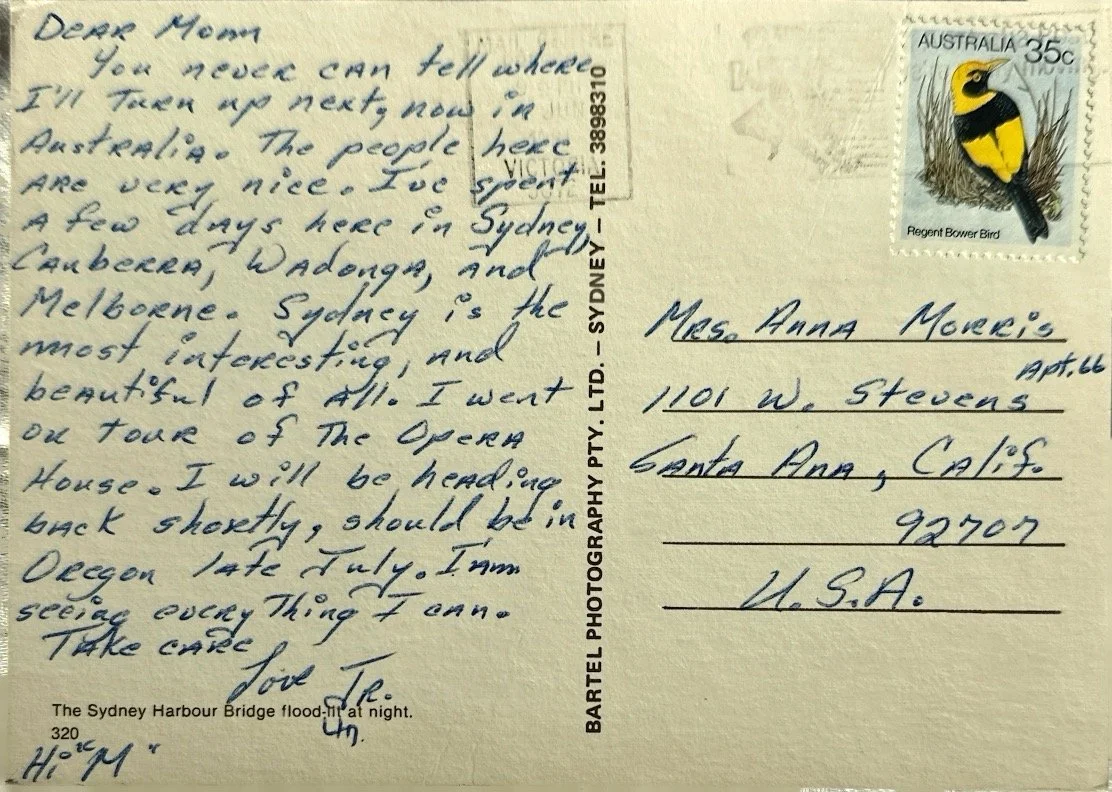 Dear Mom
You never can tell where
I'll Turn up next, now in
Australia. The people here
are very nice. I've spent
a few days here in Sydney,
Canberra, Wadonga, and
Melborne. Sydney is the
most interesting, and
beautiful of all. I went
on tour of The Opera
House. I will be heading
back shortly, should be in
Oregon late July. I am
seeing every Thing I can.
Take care
Love Jr.
The Sydney Harbour Bridge flood-lit at night.
320
Hi "M"
BARTEL PHOTOGRAPHY PTY. LTD. – SYDNEY – TEL. 3898310
JUN
VICTORIA
AUSTRALIA 35c
Regent Bower Bird
Mrs. Anna Morris
Apt. 66
1101 W. Stevens
Santa Ana, Calif.
92707
U.S.A.